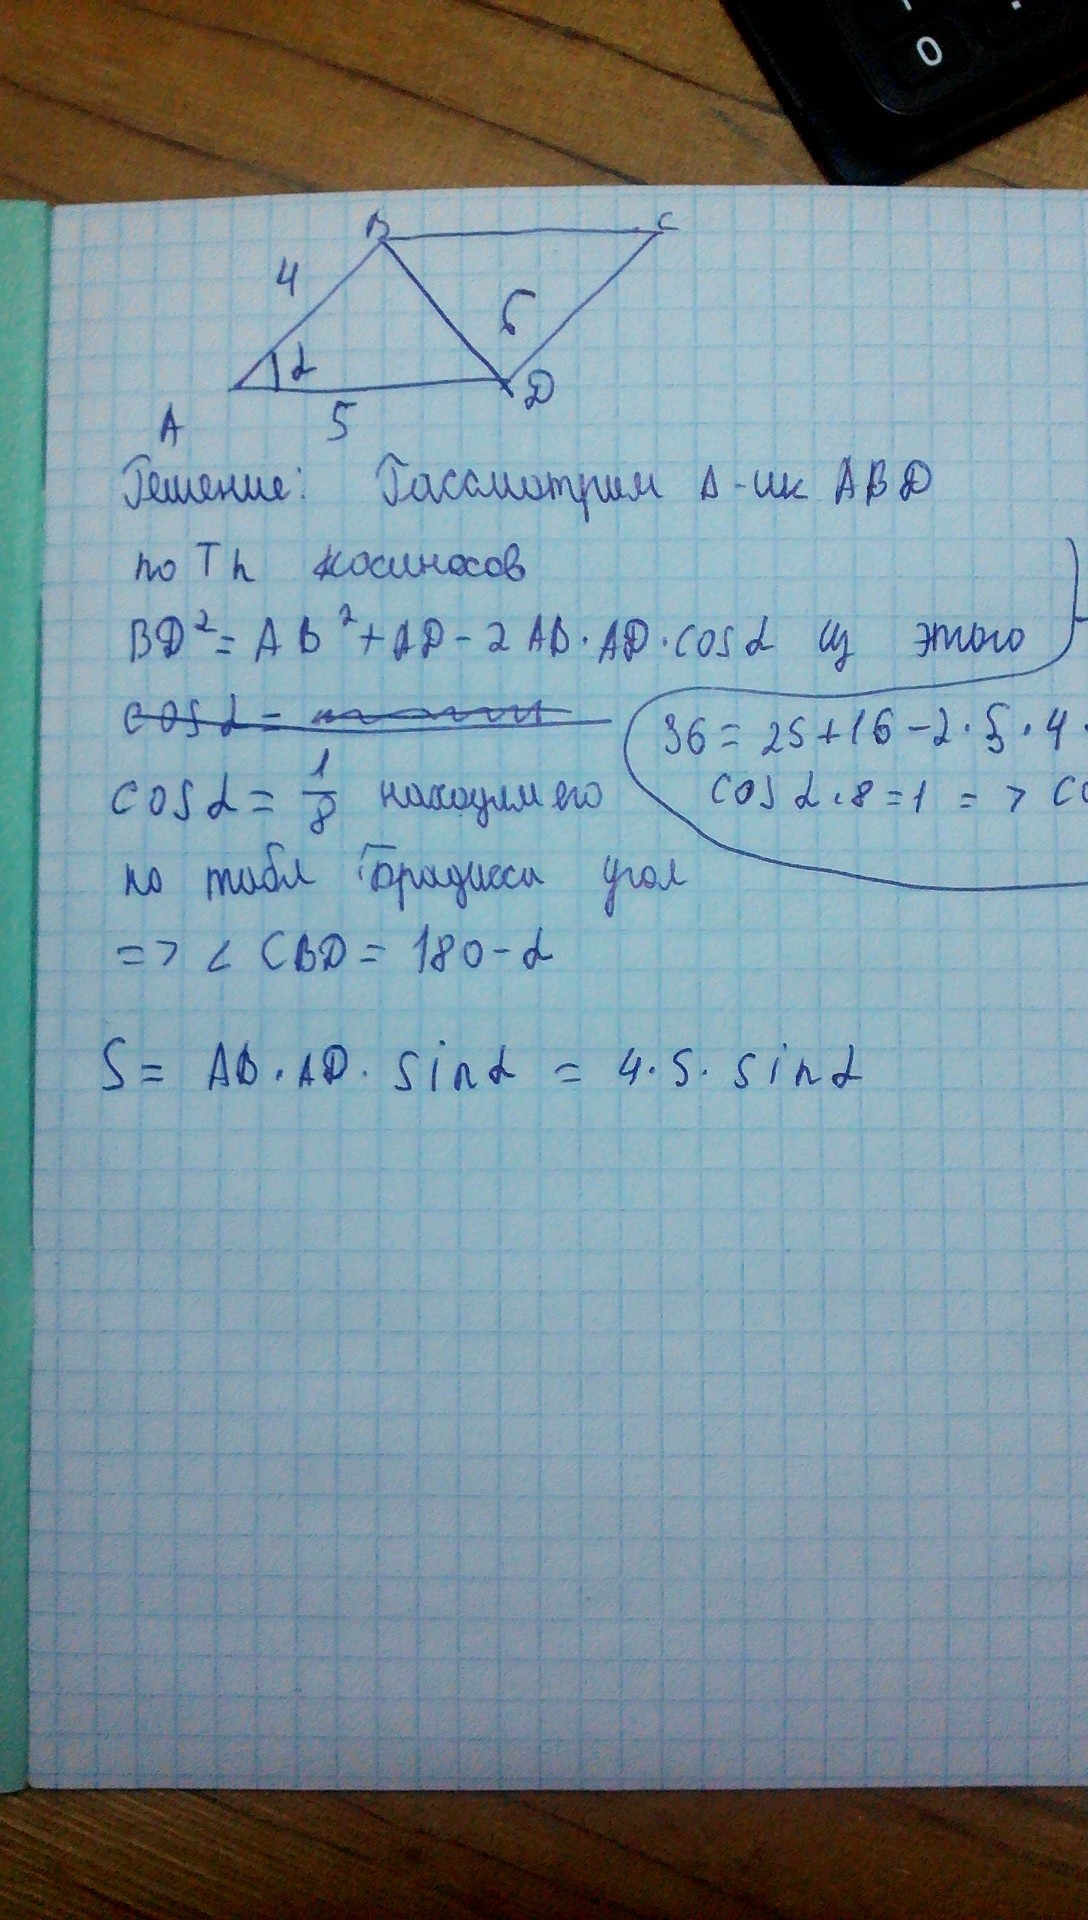 0
B
C
4
6
α
5
D
A
Решение: Рассмотрим Δ-ик ABD
по Th косиносов
BD²= AB²+AD-2AB·AD·cosα из этого
cosα=
36=25+16-2·5·4·
cosα= 1/8 находим его
cosα·8=1 => co
по табл Брадисса угол
=> < CBD= 180-α
S= AB·AD· sinα = 4·5· sinα